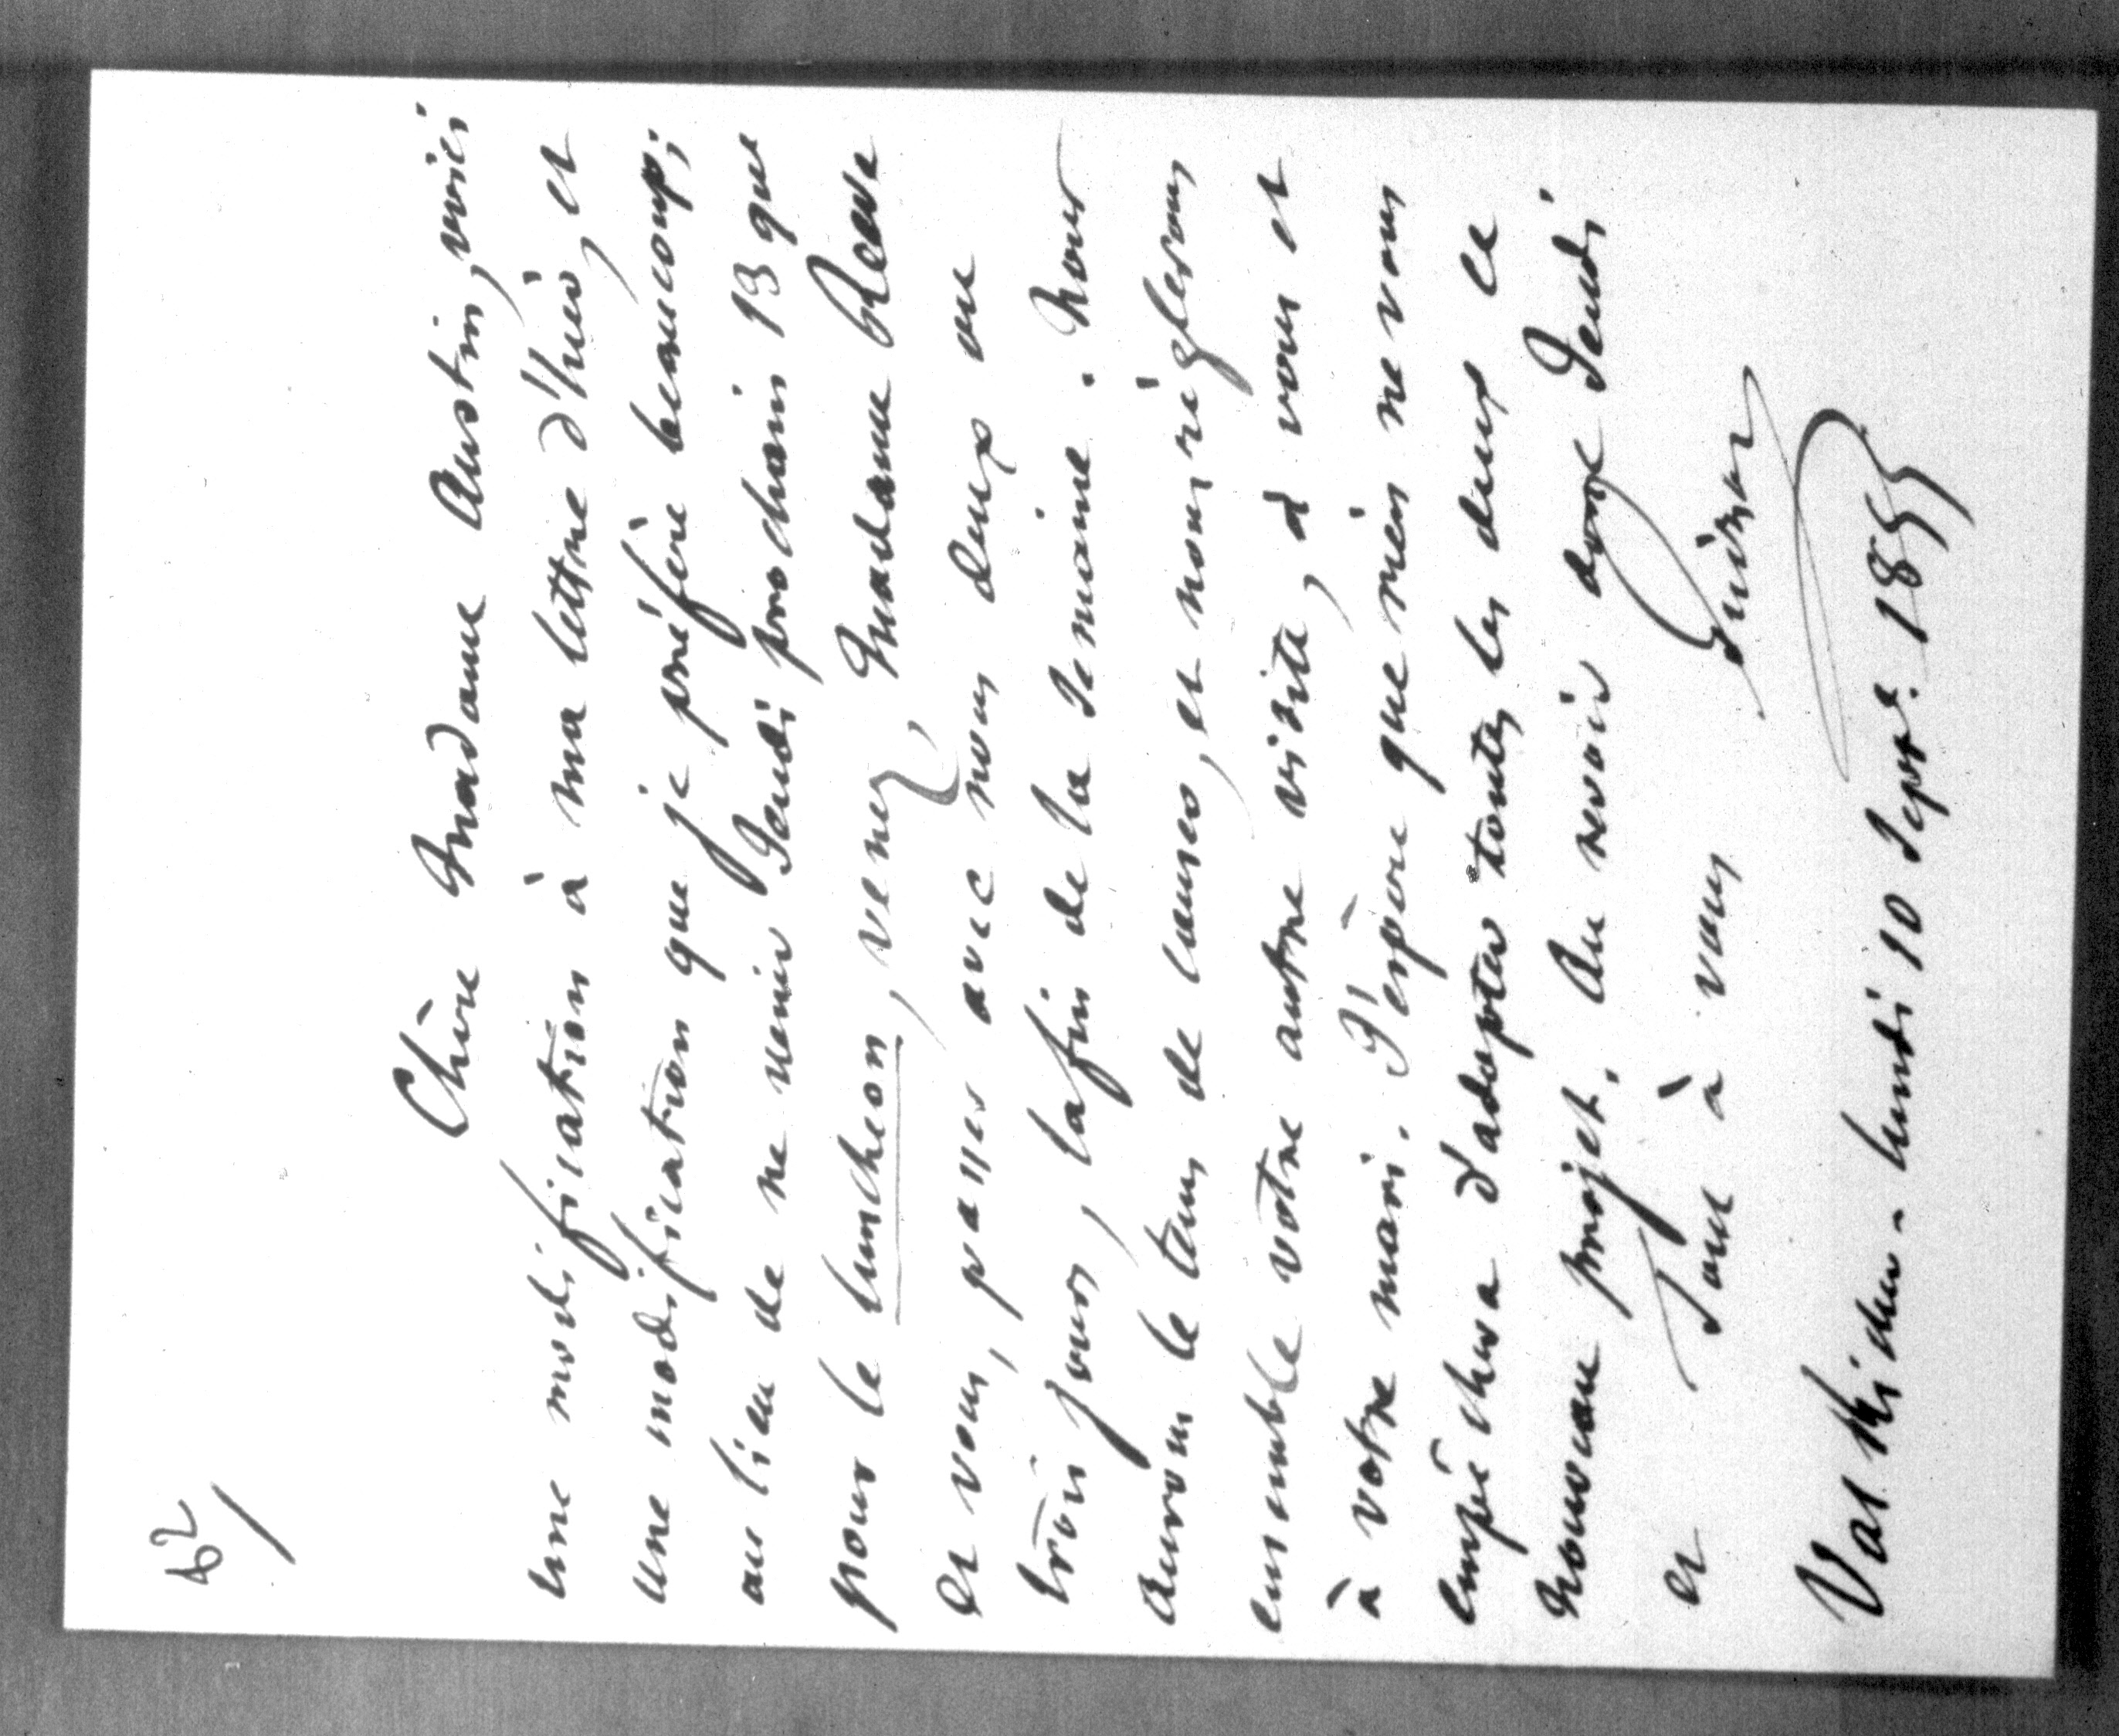 62
Chère Madame Austin, voici
une modification à ma lettre d'hier, et
une modification que je préfère beaucoup;
au lieu de ne venir Jeudi prochain 13 que
pour le luncheon, venez, Madame Reeve
et vous, passer avec nous deux ou
trois jours, la fin de la semaine. Nous
aurons le tems de causer, et nous règlerons
ensemble votre autre visite, à vous et
à votre mari. J'espère que rien ne vous
empêchera d'adopter toutes les deux ce
nouveau projet. Au revoir donc Jeudi
et Tout à vous
Guizot
Val Richer - Lundi 10 Sept. 1855